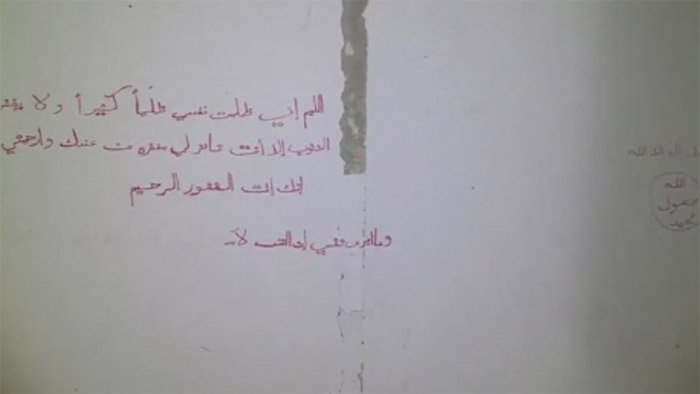 اللهم إني ظلمت نفسي ظلماً كثيراً ولا يغفر
الذنوب إلا أنت فاغفر لي مغفرة من عندك وارحمني
إنك أنت الغفور الرحيم
إله إلا الله
الله
رسول
محمد